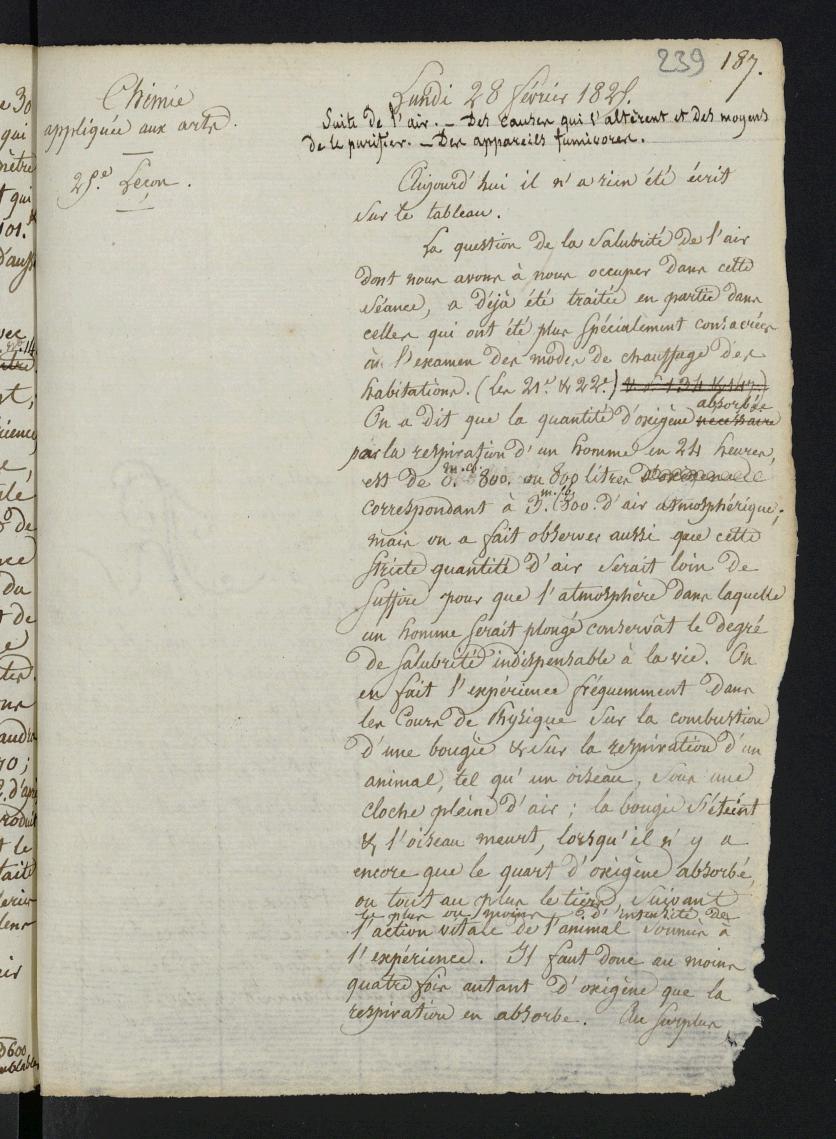 239 187.
Chimie
appliquée aux arts.
25.e Leçon.
Lundi 28 février 1825.
Suite de l'air. — Des causes qui l'altèrent et des moyens
de le purifier. — Des appareils fumivores.
Aujourd'hui il n'a rien été écrit
sur le tableau.
La question de la salubrité de l'air
dont nous avons à nous occuper dans cette
séance, a déjà été traitée en partie dans
celles qui ont été plus spécialement consacrées
à l'examen des modes de chauffage des
habitations. (les 21.e & 22.e)
On a dit que la quantité d'oxigène nécessaire absorbée
par la respiration d'un homme en 24 heures,
est de 0.m.c. 800. ou 800 litres
correspondant à 3.m.c. 500. d'air atmosphérique;
mais on a fait observer aussi que cette
stricte quantité d'air serait loin de
suffire pour que l'atmosphère dans laquelle
un homme serait plongé conservât le degré
de salubrité indispensable à la vie. On
en fait l'expérience fréquemment dans
les Cours de Physique sur la combustion
d'une bougie & sur la respiration d'un
animal, tel qu'un oiseau, sous une
cloche pleine d'air; la bougie s'éteint
& l'oiseau meurt, lorsqu'il n'y a
encore que le quart d'oxigène absorbé,
ou tout au plus le tiers, suivant
le plus ou moins d'intensité de
l'action vitale de l'animal soumis à
l'expérience. Il faut donc au moins
quatre fois autant d'oxigène que la
respiration en absorbe. Au surplus